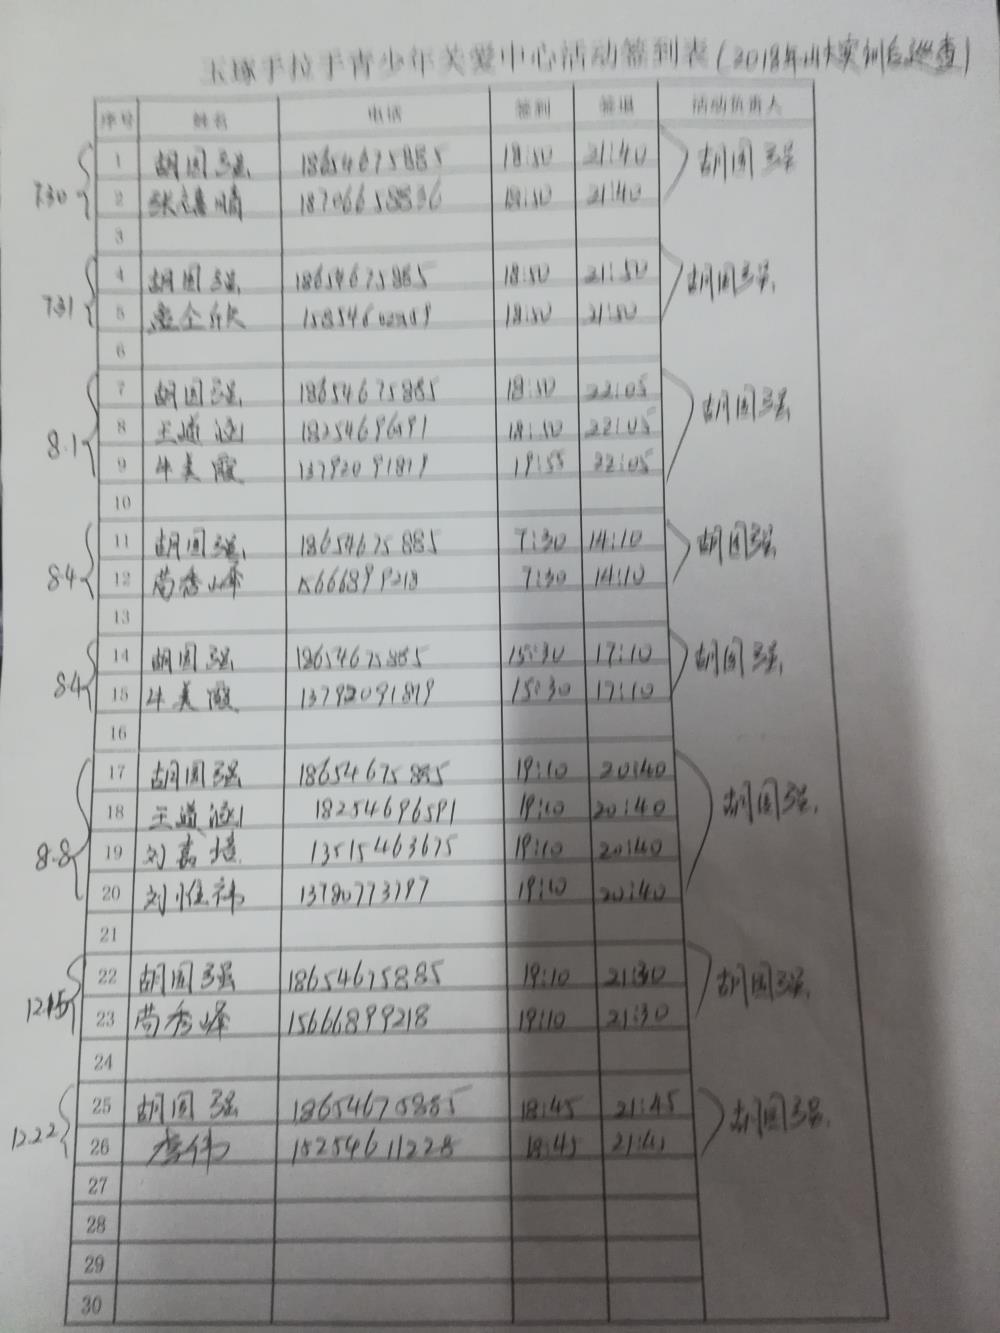 玉琢手拉手青少年关爱中心活动签到表(2018年山大实训后巡查)
序号 姓名 电话 签到 签退 活动负责人
7.30 1 胡国强 18654675885 18:50 21:40 胡国强
2 18706658836 18:50 21:40
3
7.31 4 胡国强 18654675885 18:50 21:50 胡国强
5 18:50 21:50
6
8.1 7 胡国强 18654675885 18:50 22:05 胡国强
8 王道涵 18254696591 18:50 22:05
9 牛美霞 13792091819 19:55 22:05
10
8.4 11 胡国强 18654675885 7:30 14:10 胡国强
12 苟秀峰 15666899218 7:30 14:10
13
8.4 14 胡国强 18654675885 15:30 17:10 胡国强
15 牛美霞 13792091819 15:30 17:10
16
8.8 17 胡国强 18654675885 19:10 20:40 胡国强
18 王道涵 18254696591 19:10 20:40
19 刘嘉 13515463675 19:10 20:40
20 刘惟祎 13780773797 19:10 20:40
21
12.15 22 胡国强 18654675885 19:10 21:30 胡国强
23 苟秀峰 15666899218 19:10 21:30
24
12.22 25 胡国强 18654675885 18:45 21:45 胡国强
26 18:45 21:45
27
28
29
30